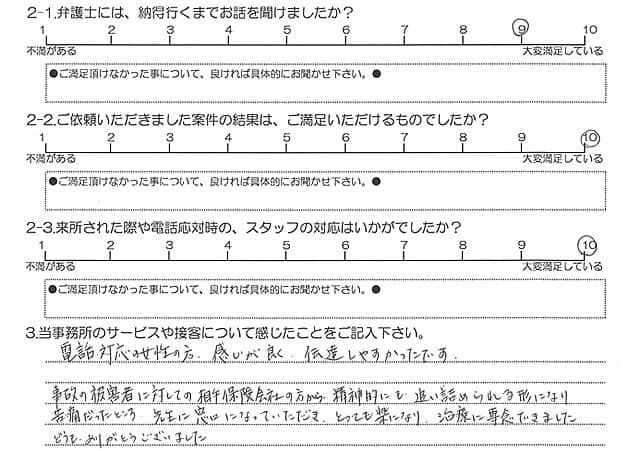 2-1.弁護士には、納得行くまでお話を聞けましたか？
1 2 3 4 5 6 7 8 9 10
不満がある 大変満足している
●ご満足頂けなかった事について、良ければ具体的にお聞かせ下さい。●
2-2.ご依頼いただきました案件の結果は、ご満足いただけるものでしたか？
1 2 3 4 5 6 7 8 9 10
不満がある 大変満足している
●ご満足頂けなかった事について、良ければ具体的にお聞かせ下さい。●
2-3.来所された際や電話応対時の、スタッフの対応はいかがでしたか？
1 2 3 4 5 6 7 8 9 10
不満がある 大変満足している
●ご満足頂けなかった事について、良ければ具体的にお聞かせ下さい。●
3.当事務所のサービスや接客について感じたことをご記入下さい。
電話対応の女性の方、感じが良く、伝達しやすかったです。
事故の被害者に対しての相手保険会社の方から、精神的にも追い詰められる形になり
苦痛だったところ、先生に窓口になっていただき、とっても楽になり、治療に専念できました
どうもありがとうございました